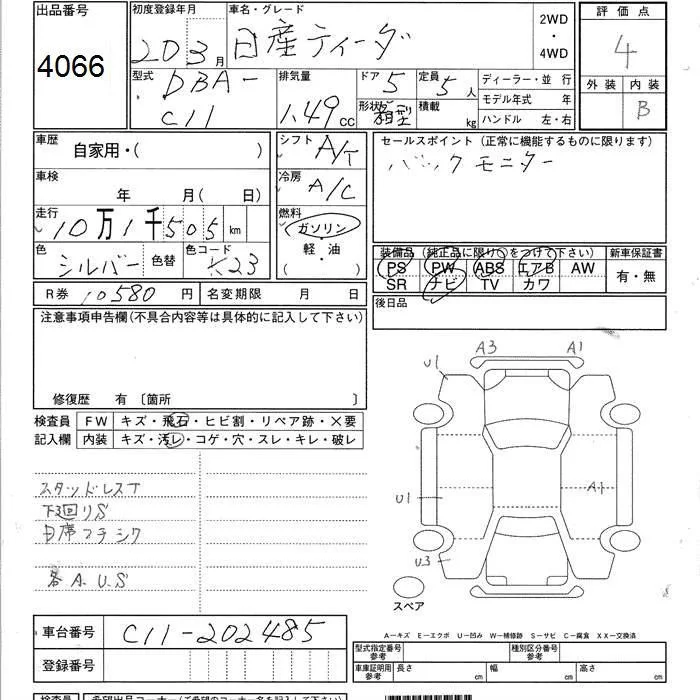 出品番号
4066
初度登録年月
20 3月
車名・グレード
日産ティーダ
2WD
・
4WD
評価点
4
外装 内装
B
型式
DBA-
C11
排気量
1.49 cc
ドア 5
形状 箱型
定員 5人
積載 kg
ディーラー・並行
モデル年式 年
ハンドル 左・右
車歴
自家用・( )
シフト
A/T
セールスポイント(正常に機能するものに限ります)
バックモニター
車検
年 月( 日)
冷房
A/C
走行
10万1千505km
燃料
ガソリン
軽・油
( ・ )
色
シルバー 色替
色コード
K23
装備品(純正品に限り○をつけて下さい)
PS PW ABS エアB AW
SR ナビ TV カワ
新車保証書
有・無
R券 10580円 名変期限 月 日
後日品
注意事項申告欄(不具合内容等は具体的に記入して下さい)
修復歴 有〔箇所 〕
検査員
記入欄
FW キズ・飛石・ヒビ割・リペア跡・×要
内装 キズ・汚レ・コゲ・穴・スレ・キレ・破レ
スタッドレスT
下廻りS
各A.U.S
A3 A1
U1
U1
A1
U3
スペア
車台番号 C11-202485
登録番号
A-キズ E-エクボ U-凹み W-補修跡 S-サビ C-腐食 XX-交換済
型式指定番号
参考
種別区分番号
参考
車庫証明用
参考
長さ cm 幅 cm 高さ cm
検査員 希望出品コーナー(ご希望のコーナー名を記入下さい)